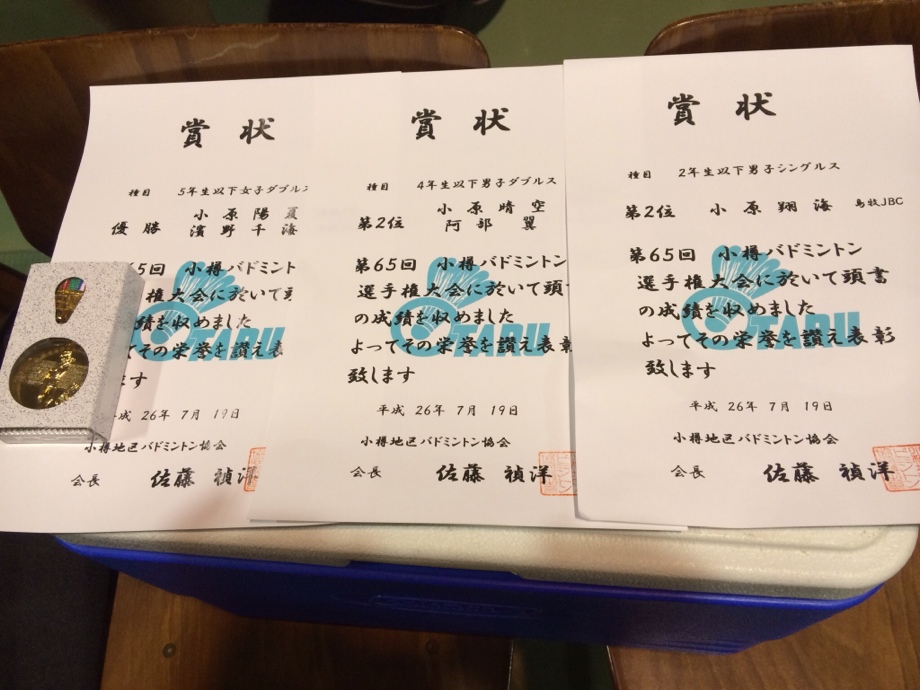 賞 状
種目 5年生以下女子ダブルス
優 勝
小 原 陽 夏
濱 野 千 海
65回 小樽バドミント
権大会に於いて頭
の成績を収めました
よってその栄誉を讃え表
ます
平成 26年 7月 19日
小樽地区バドミントン協会
会長 佐藤 禎洋
OTARU
賞 状
種目 4年生以下男子ダブルス
第2位
小 原 晴 空
阿 部 翼
第65回 小樽バドミントン
選手権大会に於いて頭
の成績を収めました
よってその栄誉を讃え表
致します
平成 26年 7月 19日
小樽地区バドミントン協会
会長 佐藤 禎洋
OTARU
賞 状
種目 2年生以下男子シングルス
第2位 小 原 翔 海 島牧JBC
第65回 小樽バドミントン
選手権大会に於いて頭書
の成績を収めました
よってその栄誉を讃え表彰
致します
平成 26年 7月 19日
小樽地区バドミントン協会
会長 佐藤 禎洋
OTARU